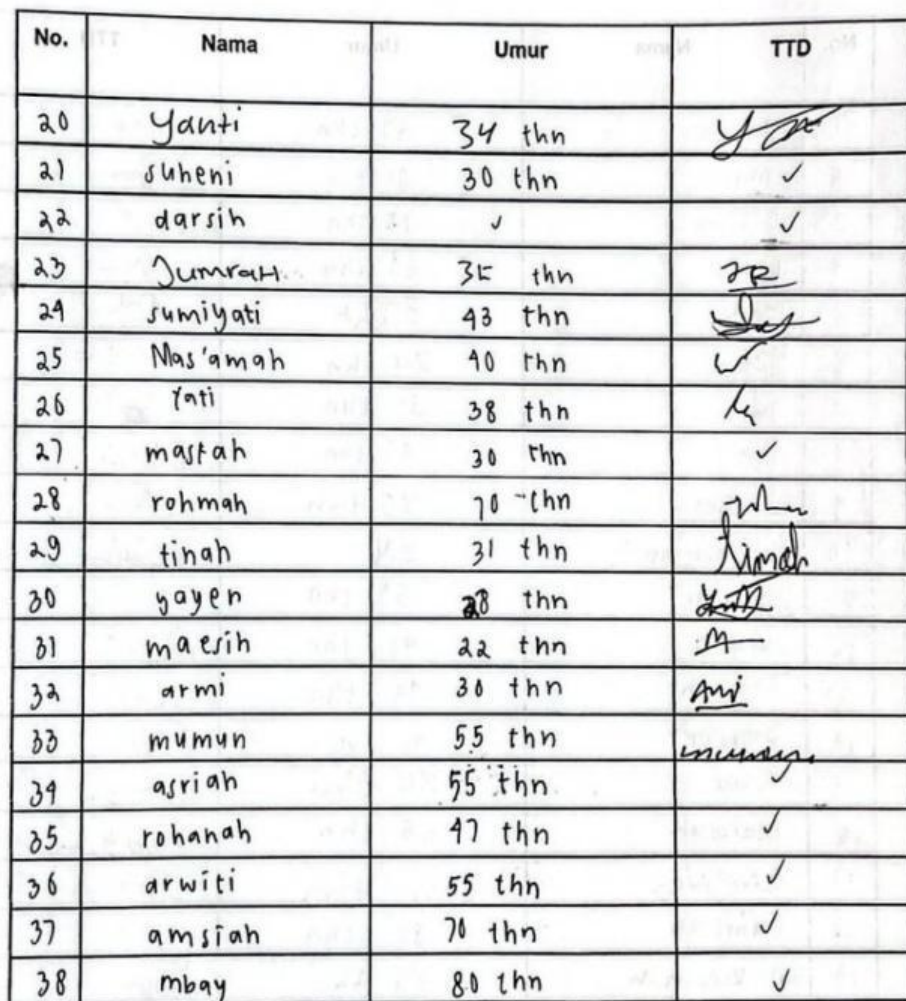 No. Nama Umur TTD
20 Yanti 34 thn
21 suheni 30 thn ✓
22 darsih ✓ ✓
23 Jumrah 35 thn JR
24 sumiyati 43 thn
25 Mas'amah 40 thn ✓
26 Yati 38 thn
27 mastah 30 thn ✓
28 rohmah 70 thn
29 tinah 31 thn tinah
30 yayen 28 thn
31 maesih 22 thn
32 armi 30 thn Ami
33 mumun 55 thn mumun
34 asriah 55 thn ✓
35 rohanah 47 thn ✓
36 arwiti 55 thn ✓
37 amsiah 70 thn ✓
38 mbay 80 thn ✓